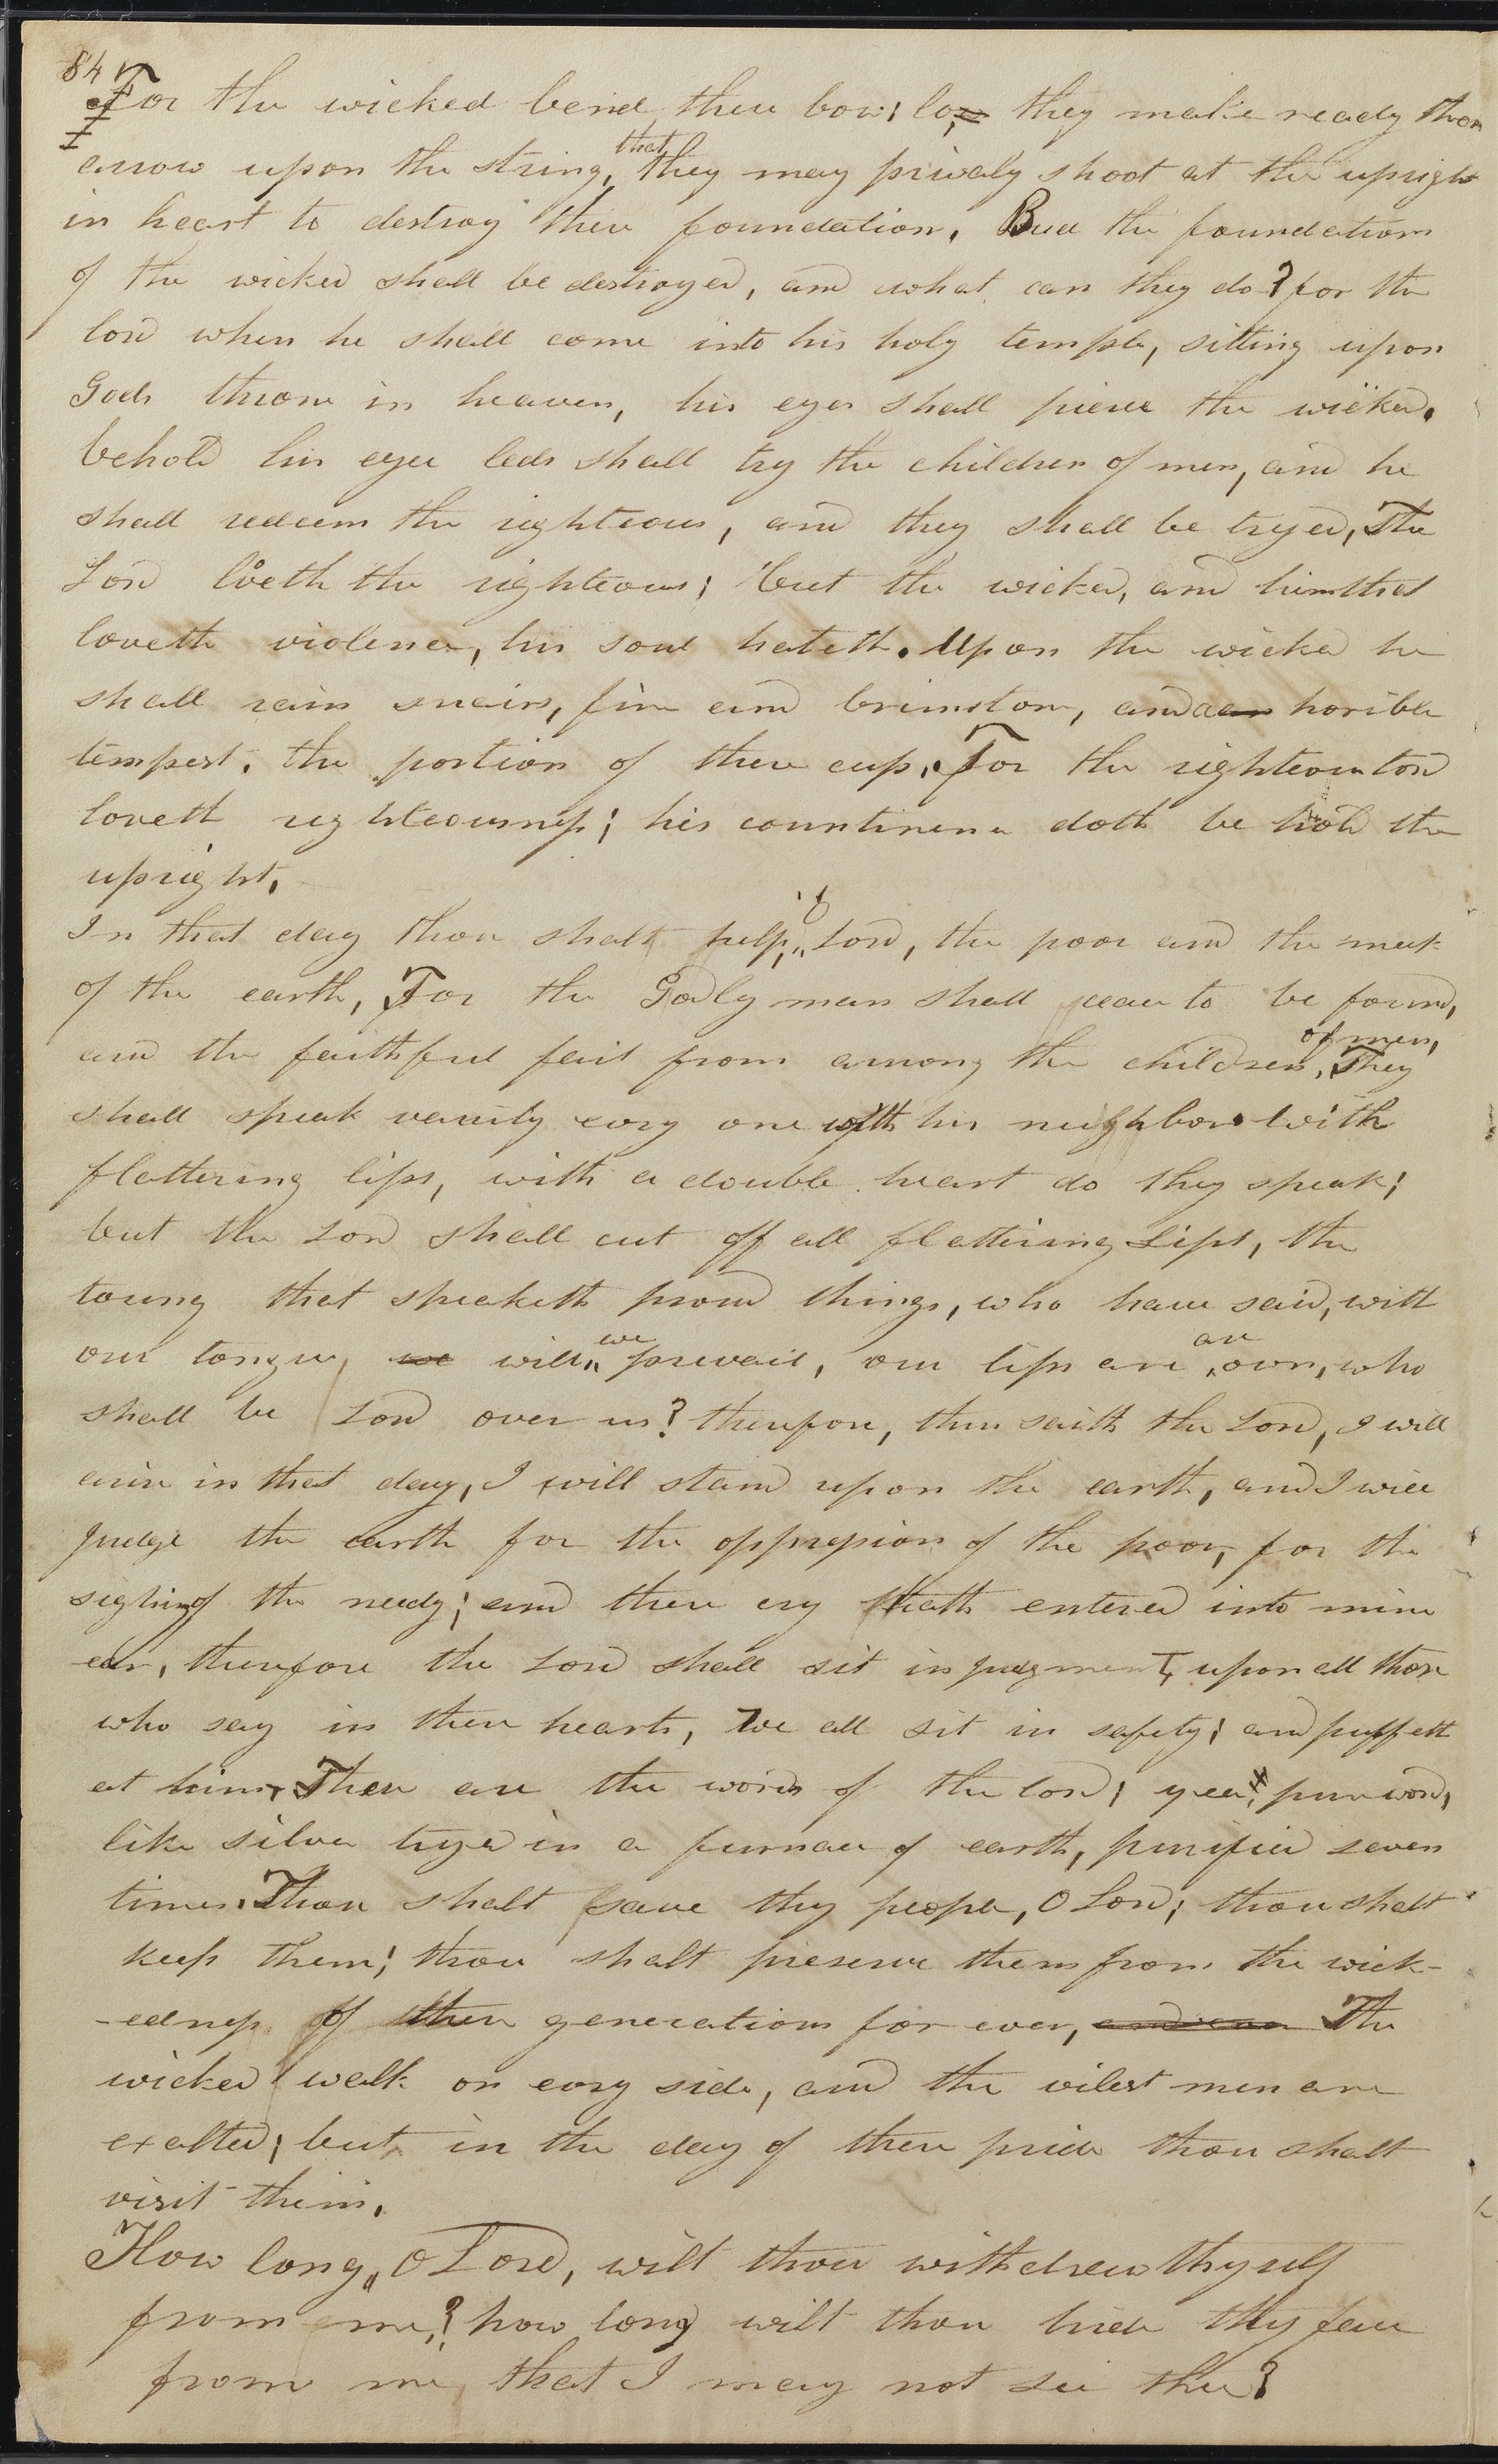 84
For the wicked bend there bow; lo, they make ready there
arrow upon the string, that they may privaly shoot at the upright
in heart to destroy there foundation. But the foundations
of the wicked shall be destroyed, and what can they do? for the
lord when he shall come into his holy temple, sitting upon
Gods throne in heaven, his eyes shall pierce the wicked.
behold his eye leds shall try the children of men, and he
shall redeem the righteous, and they shall be tryed, The
Lord loveth the righteous; but the wicked, and him that
loveth violence, his soul hateth. Upon the wicked he
shall rain snairs, fire and brimstone, and an horible
tempest, the portion of there cup. For the righteous lord
loveth righteousness; his countinence doth be hold the
upright.
In that day thou shalt help, O Lord, the poor and the meek
of the earth, For the Godly man shall ceace to be found,
and the faithful fail from among the children of men, They
shall speak vanity evry one with his neighbor with
flattering lips, with a double heart do they speak;
but the Lord shall cut off all flattering Lips, the
toung that speaketh proud things, who have said, with
our tongue, we will we prevail, our lips are are our own, who
shall be Lord over us? therefore, thus saith the Lord, I will
arise in that day, I will stand upon the earth, and I will
judge the earth for the oppression of the poor, for the
sighing of the needy; and there cry hath entered into mine
ear, therefore the Lord shall sit in judgment, upon all those
who say in there hearts, We all sit in safety; and puffeth
at him, These are the words of the lord; yea, pure words,
like silver tryed in a furnace of earth, purified seven
times. Thou shalt save thy people, O Lord; thou shalt
keep them; thou shalt preserve them from the wick-
-edness of there generations for ever, The
wicked walk on evry side, and the vilest men are
exalted; but in the day of there pride thou shalt
visit them.
How long, O Lord, wilt thou withdrew thyself
from me? how long wilt thou hide thy face
from me, that I may not see thee?